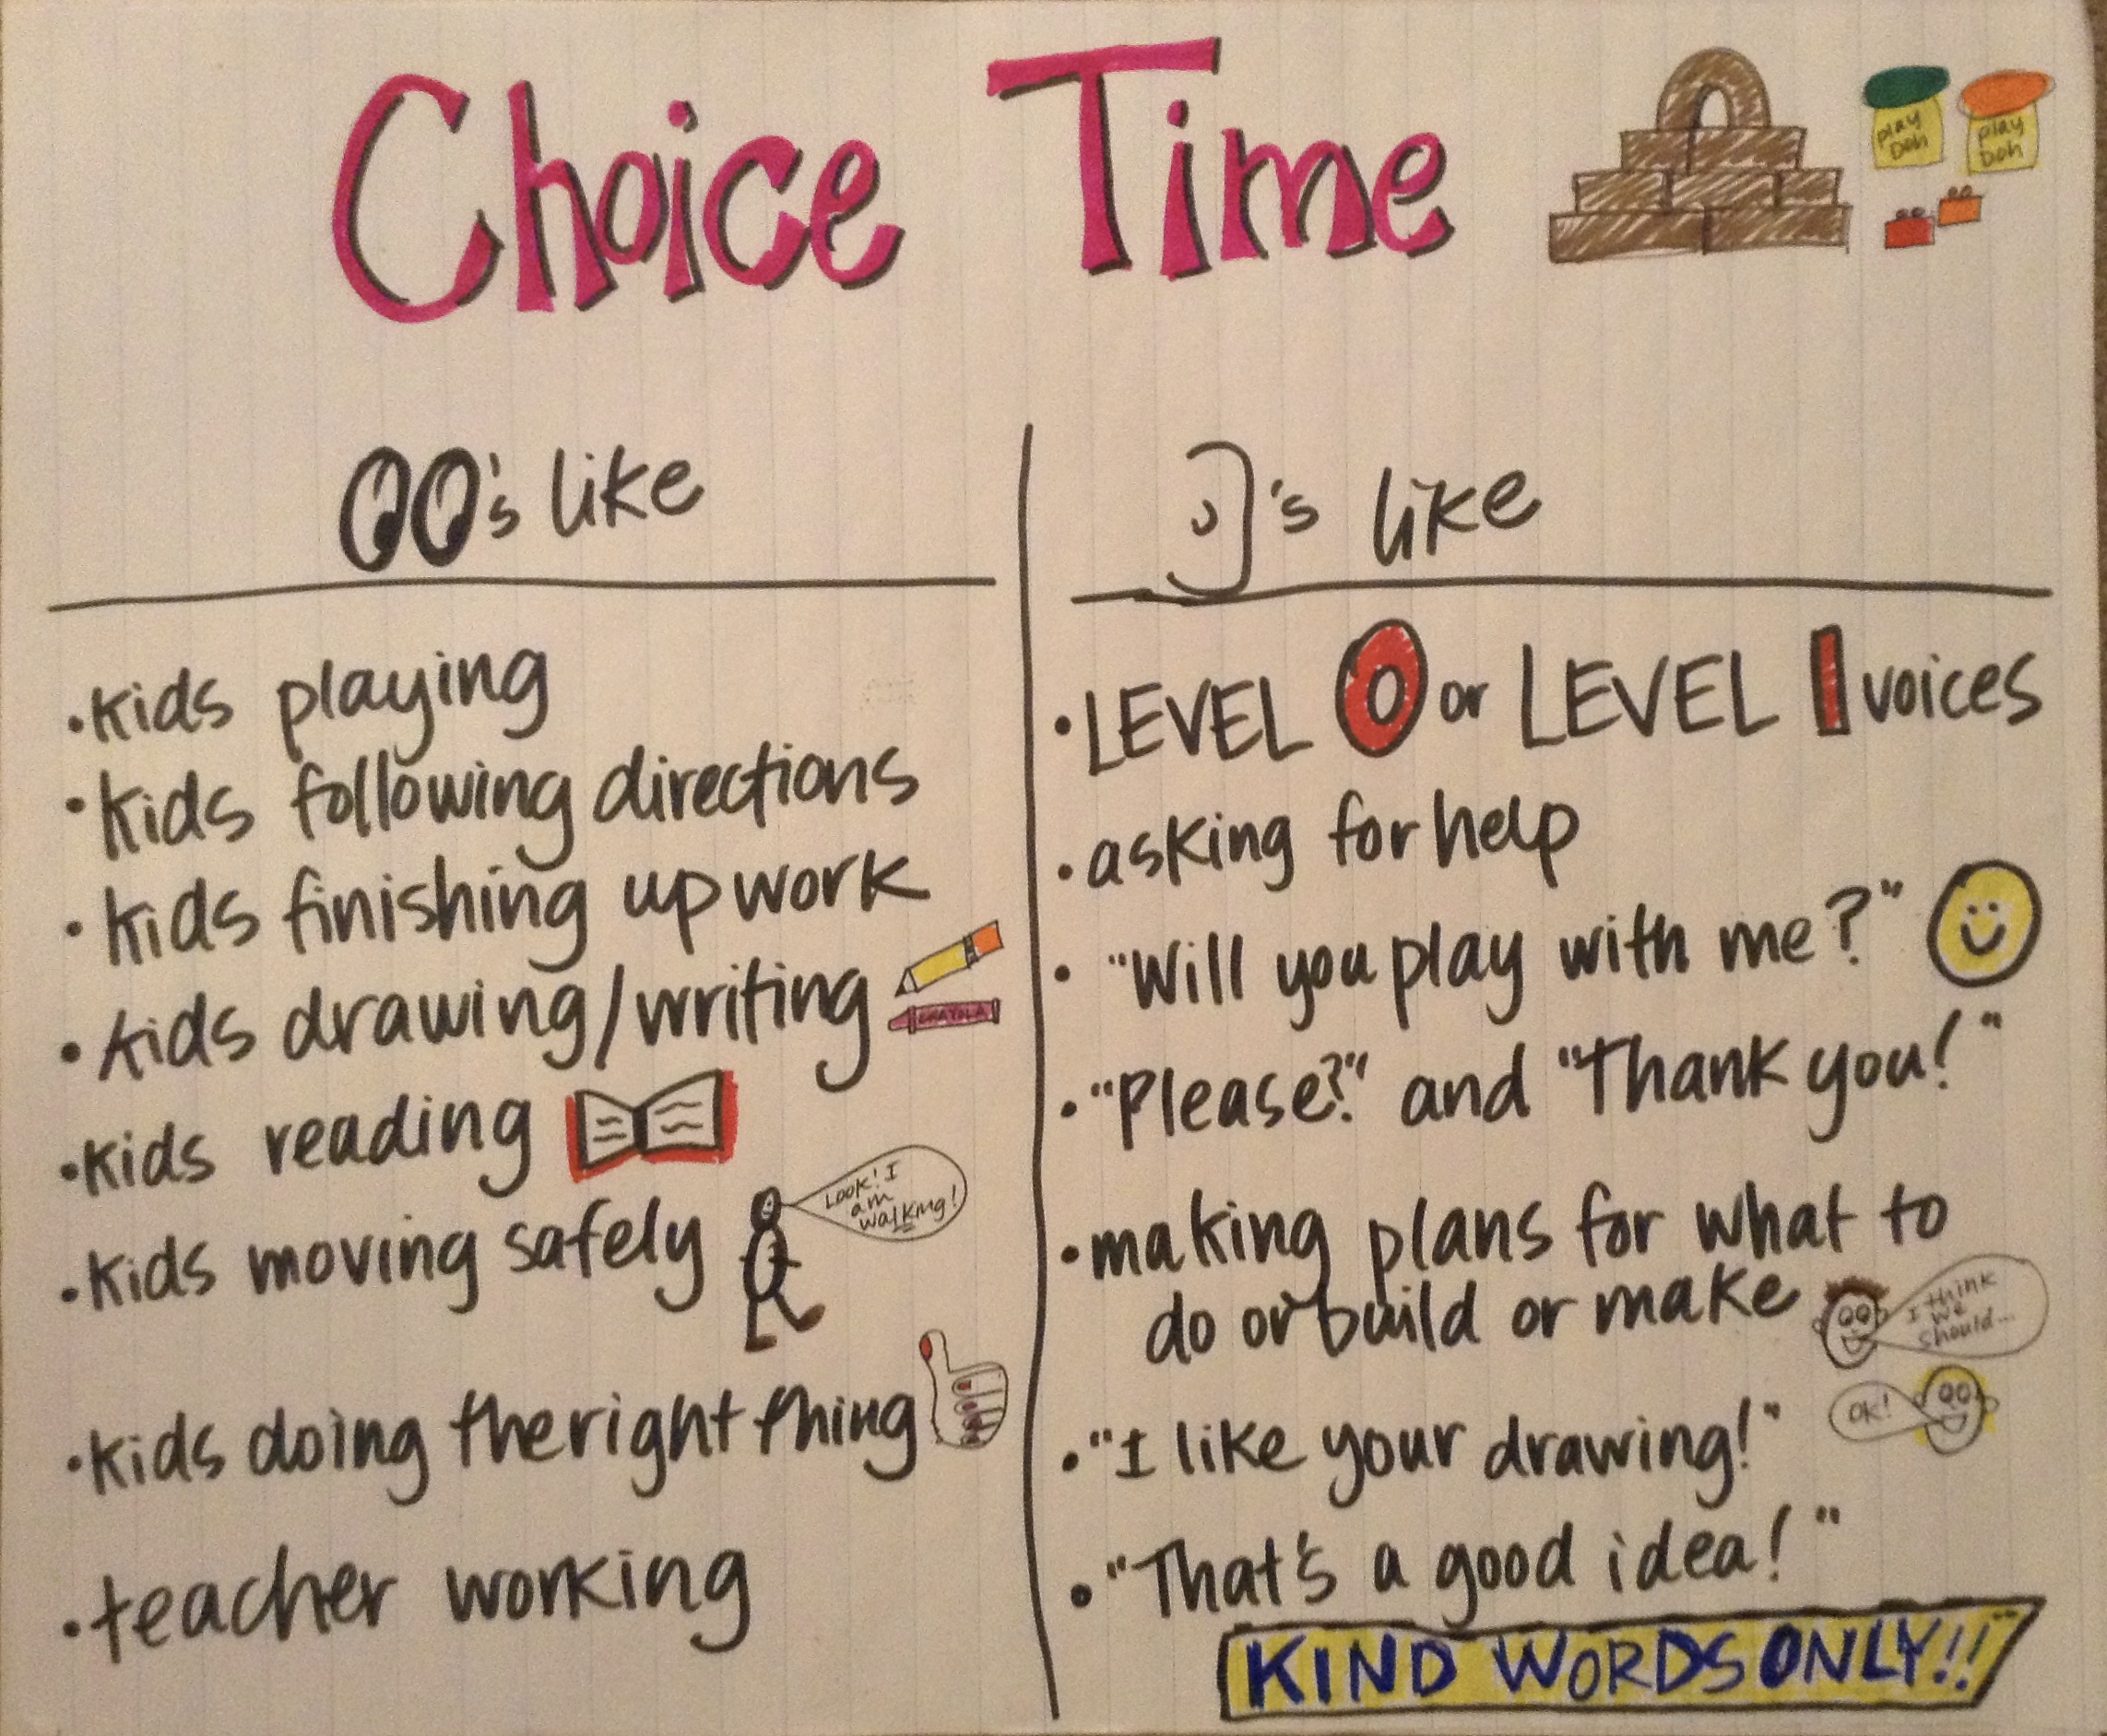 Choice Time
play Doh
play Doh
's like
kids playing
kids following directions
kids finishing up work
kids drawing/writing
CRAYOLA
kids reading
kids moving safely
Look! I
am
walking!
kids doing the right thing
teacher working
's like
LEVEL 0 or LEVEL 1 voices
asking for help
"Will you play with me?"
"Please?" and "Thank you!"
making plans for what to
do or build or make
I think
we
should...
OK!
"I like your drawing!"
"That's a good idea!"
KIND WORDS ONLY!!